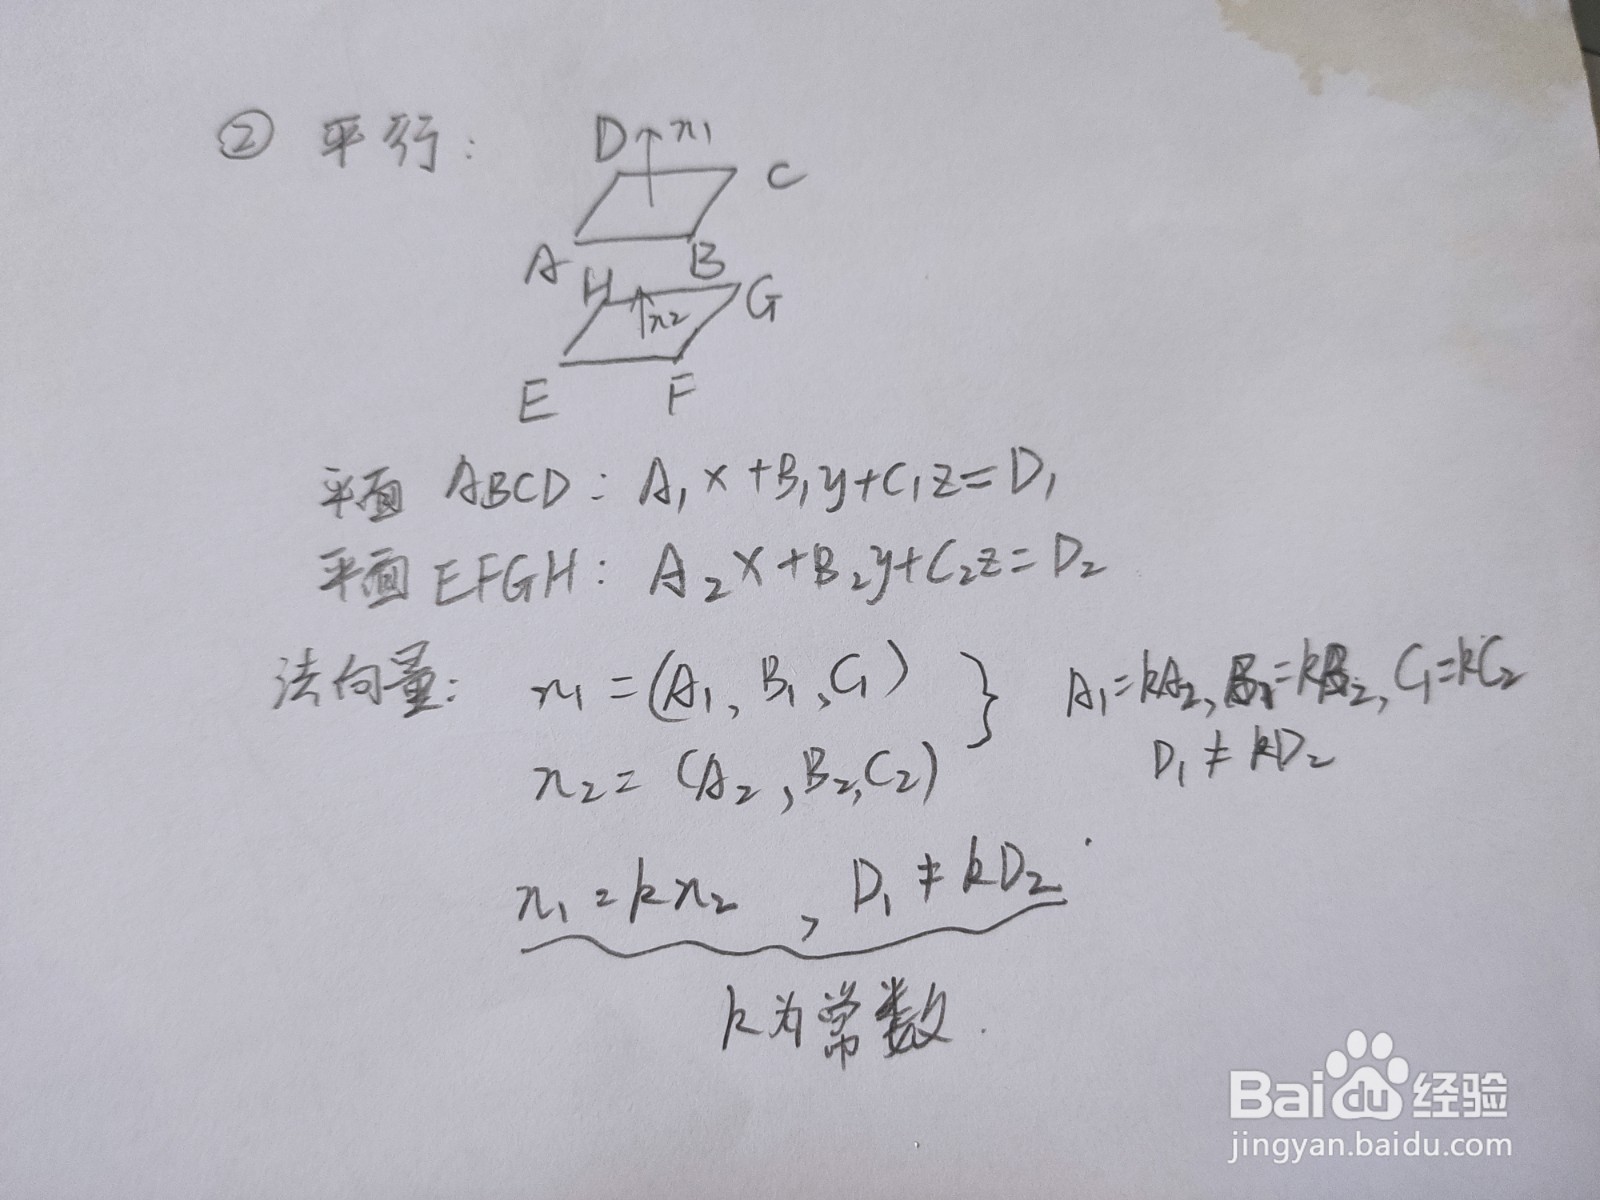 ② 平行:
D n₁
C
A B
H G
n₂
E F
平面 ABCD: A₁x+B₁y+C₁z=D₁
平面 EFGH: A₂x+B₂y+C₂z=D₂
法向量: n₁=(A₁, B₁, C₁) } A₁=kA₂, B₁=kB₂, C₁=kC₂
n₂=(A₂, B₂, C₂) D₁≠kD₂
n₁=kn₂, D₁≠kD₂
k为常数.
Bai du 经验
jingyan.baidu.com